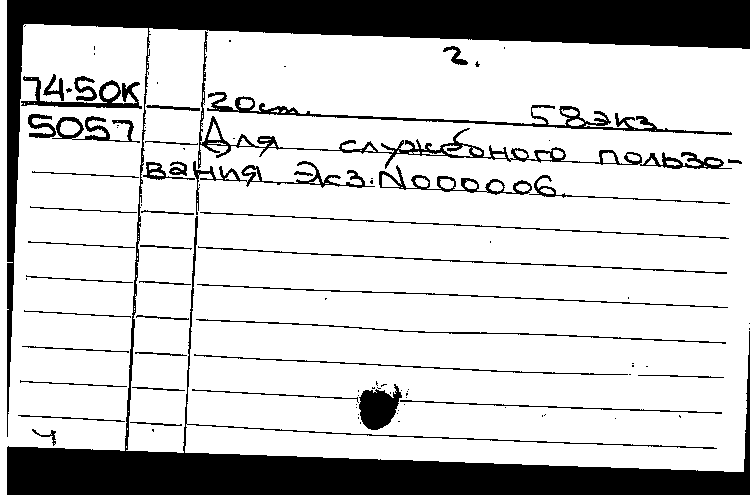 2.
74-50К
5057
20см. 58экз.
Для служебного пользо-
вания. Экз.N000006.
ч